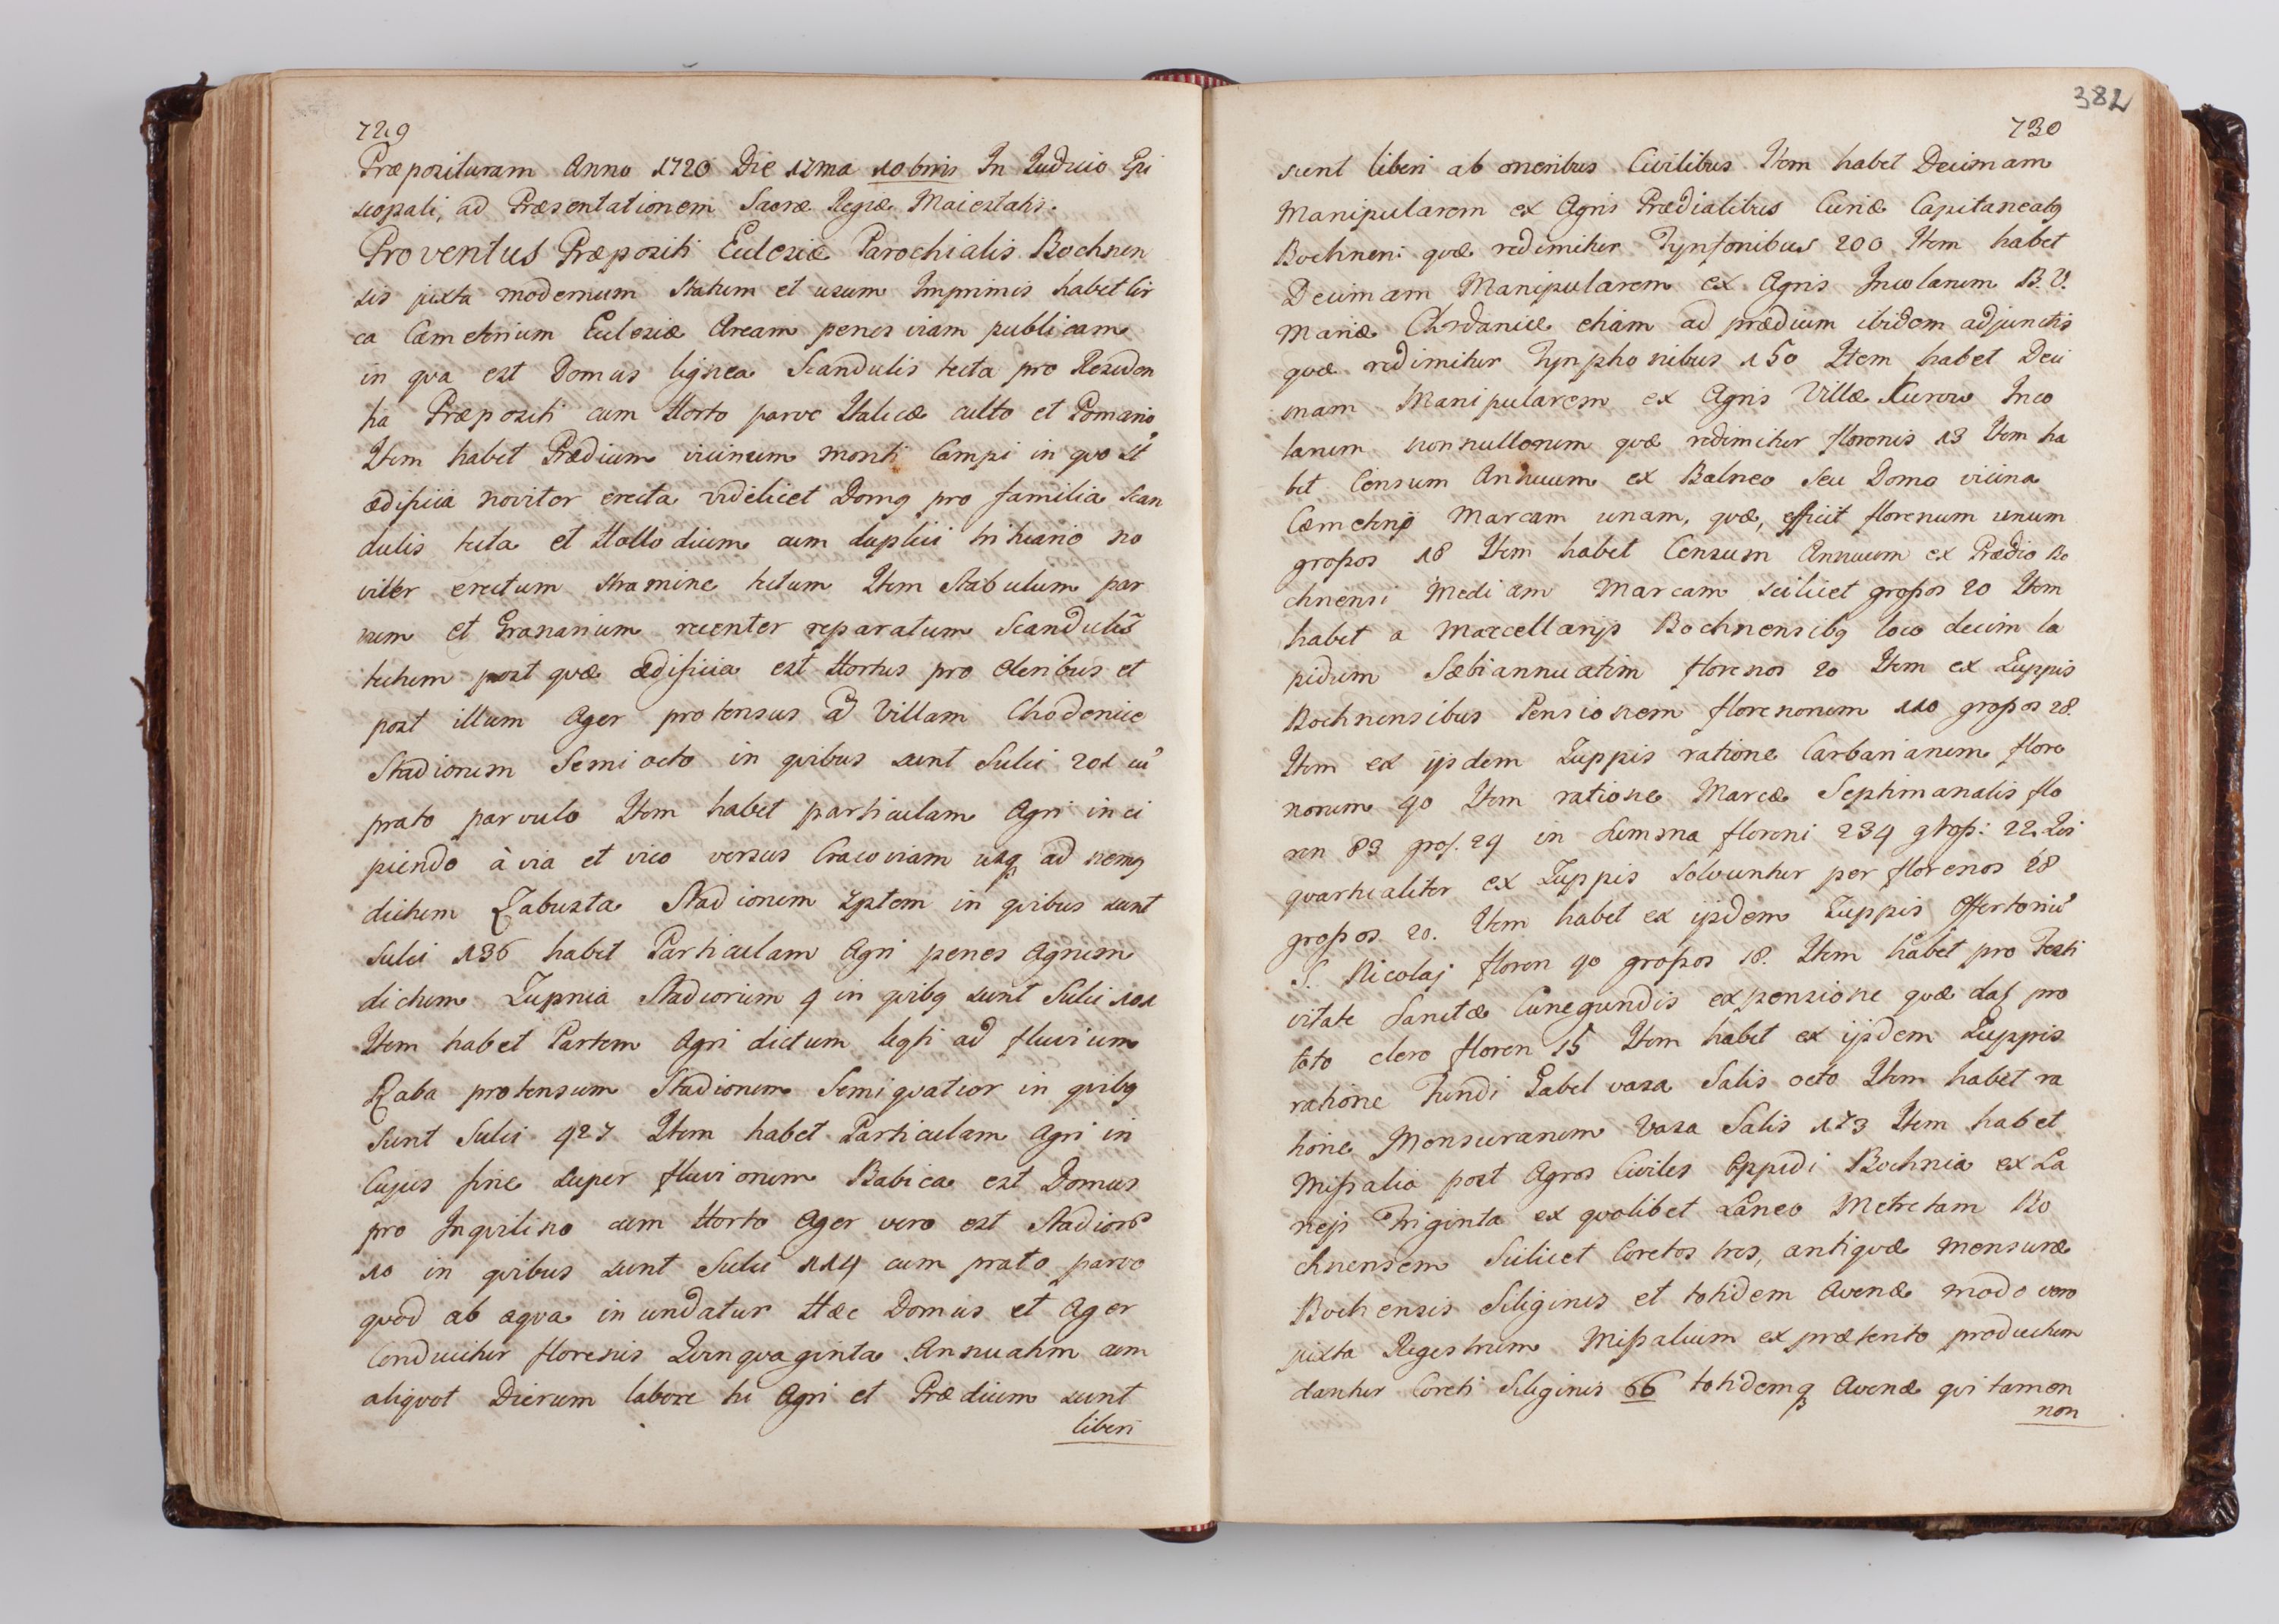 729
Præposituram Anno 1720 Die 12ma 10bris In Iudicio Epi
scopali, ad Præsentationem Sacræ Regiæ Maiestatis.
Proventus Præpositi Ecclesiæ Parochialis Bochnen
sis juxta modernum Statum et usum Imprimis habet Cir
ca Cæmeterium Ecclesiæ Aream penes viam publicam
in qva est Domus lignea Scandulis tecta pro Residen
tia Præpositi cum Horto parvo Italicæ culto et Pomario
Item habet Prædium vicinum monti Campi in qvo st
ædificia noviter erecta videlicet Domq pro familia Scan
dulis tecta et Hallodium cum duplici tritiario no
viter erectum stramine tectum Item Stabulum par
vum et Granarium recenter reparatum Scandulis
tectum post qvæ ædificia est Hortus pro oleribus et
post illum Ager protensus ad Villam Chodenice
Stadiorum Semi octo in qvibus sunt Sulci 201 cu
prato parvulo Item habet particulam Agri inci
piendo à via et vico versus Cracoviam usq ad nemq
dictum Zabuzta Stadiorum Septem in qvibus sunt
Sulci 136 habet Particulam Agri penes Agrum
dictum Zupnia Stadiorum 4 in qvibq sunt Sulci 101
Item habet Partem Agri dictum legti ad fluvium
Raba protensum Stadiorum Semiqvatior in qvibq
Sunt Sulci 427 Item habet Particulam Agri in
Cujus fine super fluviorum Babica est Domus
pro Inqvilino cum Horto Ager vero est Stadior
10 in qvibus sunt Sulci 114 cum prato parvo
qvod ab aqva inundatur Hæc Domus et Ager
Conducitur florenis Qvinqvaginta Annuatim cum
aliqvot Dierum labore hi Agri et Prædium sunt
liberi
382
730
sunt liberi ab oneribus Civilibus Item habet Decimam
Manipularem ex Agris Prædialibus Curiæ Capitanealq
Bochnen: qvæ redimitur Tynfonibus 200 Item habet
Decimam Manipularem ex Agris Incolarum B. V.
Mariæ Chodanice etiam ad prædium ibidem adjunctis
qvæ redimitur Tynphonibus 150 Item habet Deci
mam Manipularem ex Agris Villæ Kurow Inco
larum nonnullorum qvæ redimitur florenis 13 Item ha
bet Censum Annuum ex Balneo Seu Domo vicina
Cæmeterij Marcam unam, qvæ, efficit florenum unum
grossos 18 Item habet Censum Annuum ex Prædio Bo
chnensi Mediam Marcam scilicet grossos 20 Item
habet a Marcellanijs Bochnensibq loco decim la
pidum Sæbi annuatim florenos 20 Item ex Zuppis
Bochnensibus Pensionem florenorum 110 grossos 28.
Item ex ijsdem Zuppis ratione Carbariarum flore
norum 40 Item ratione Marcæ Septimanalis flo
ren 83 gros. 24 in Summa floreni 234 gross: 22. Qvi
qvartialiter ex Zuppis Solvuntur per florenos 28
grossos 20. Item habet ex ijsdem Zuppis Offertoriu
S. Nicolaj floren 40 grossos 18. Item habet pro Festi
vitate Sanctæ Cunegundis expensione qvæ dat pro
toto clero floren 15 Item habet ex ijsdem Zuppis
ratione Fundi Gabel vasa Salis octo Item habet ra
tione Mensurarum Vasa Salis 173 Item habet
Missalia post Agros Civiles Oppidi Bochnia ex La
neis Triginta ex qvolibet Laneo Metretam Bo
chnensem Scilicet Coretos tres, antiqvæ mensuræ
Bochensis Siliginis et totidem Avenæ modo vero
juxta Regestrum Missalium ex prætento productum
dantur Coreti Siliginis 66 totidemq Avenæ qvi tamen
non